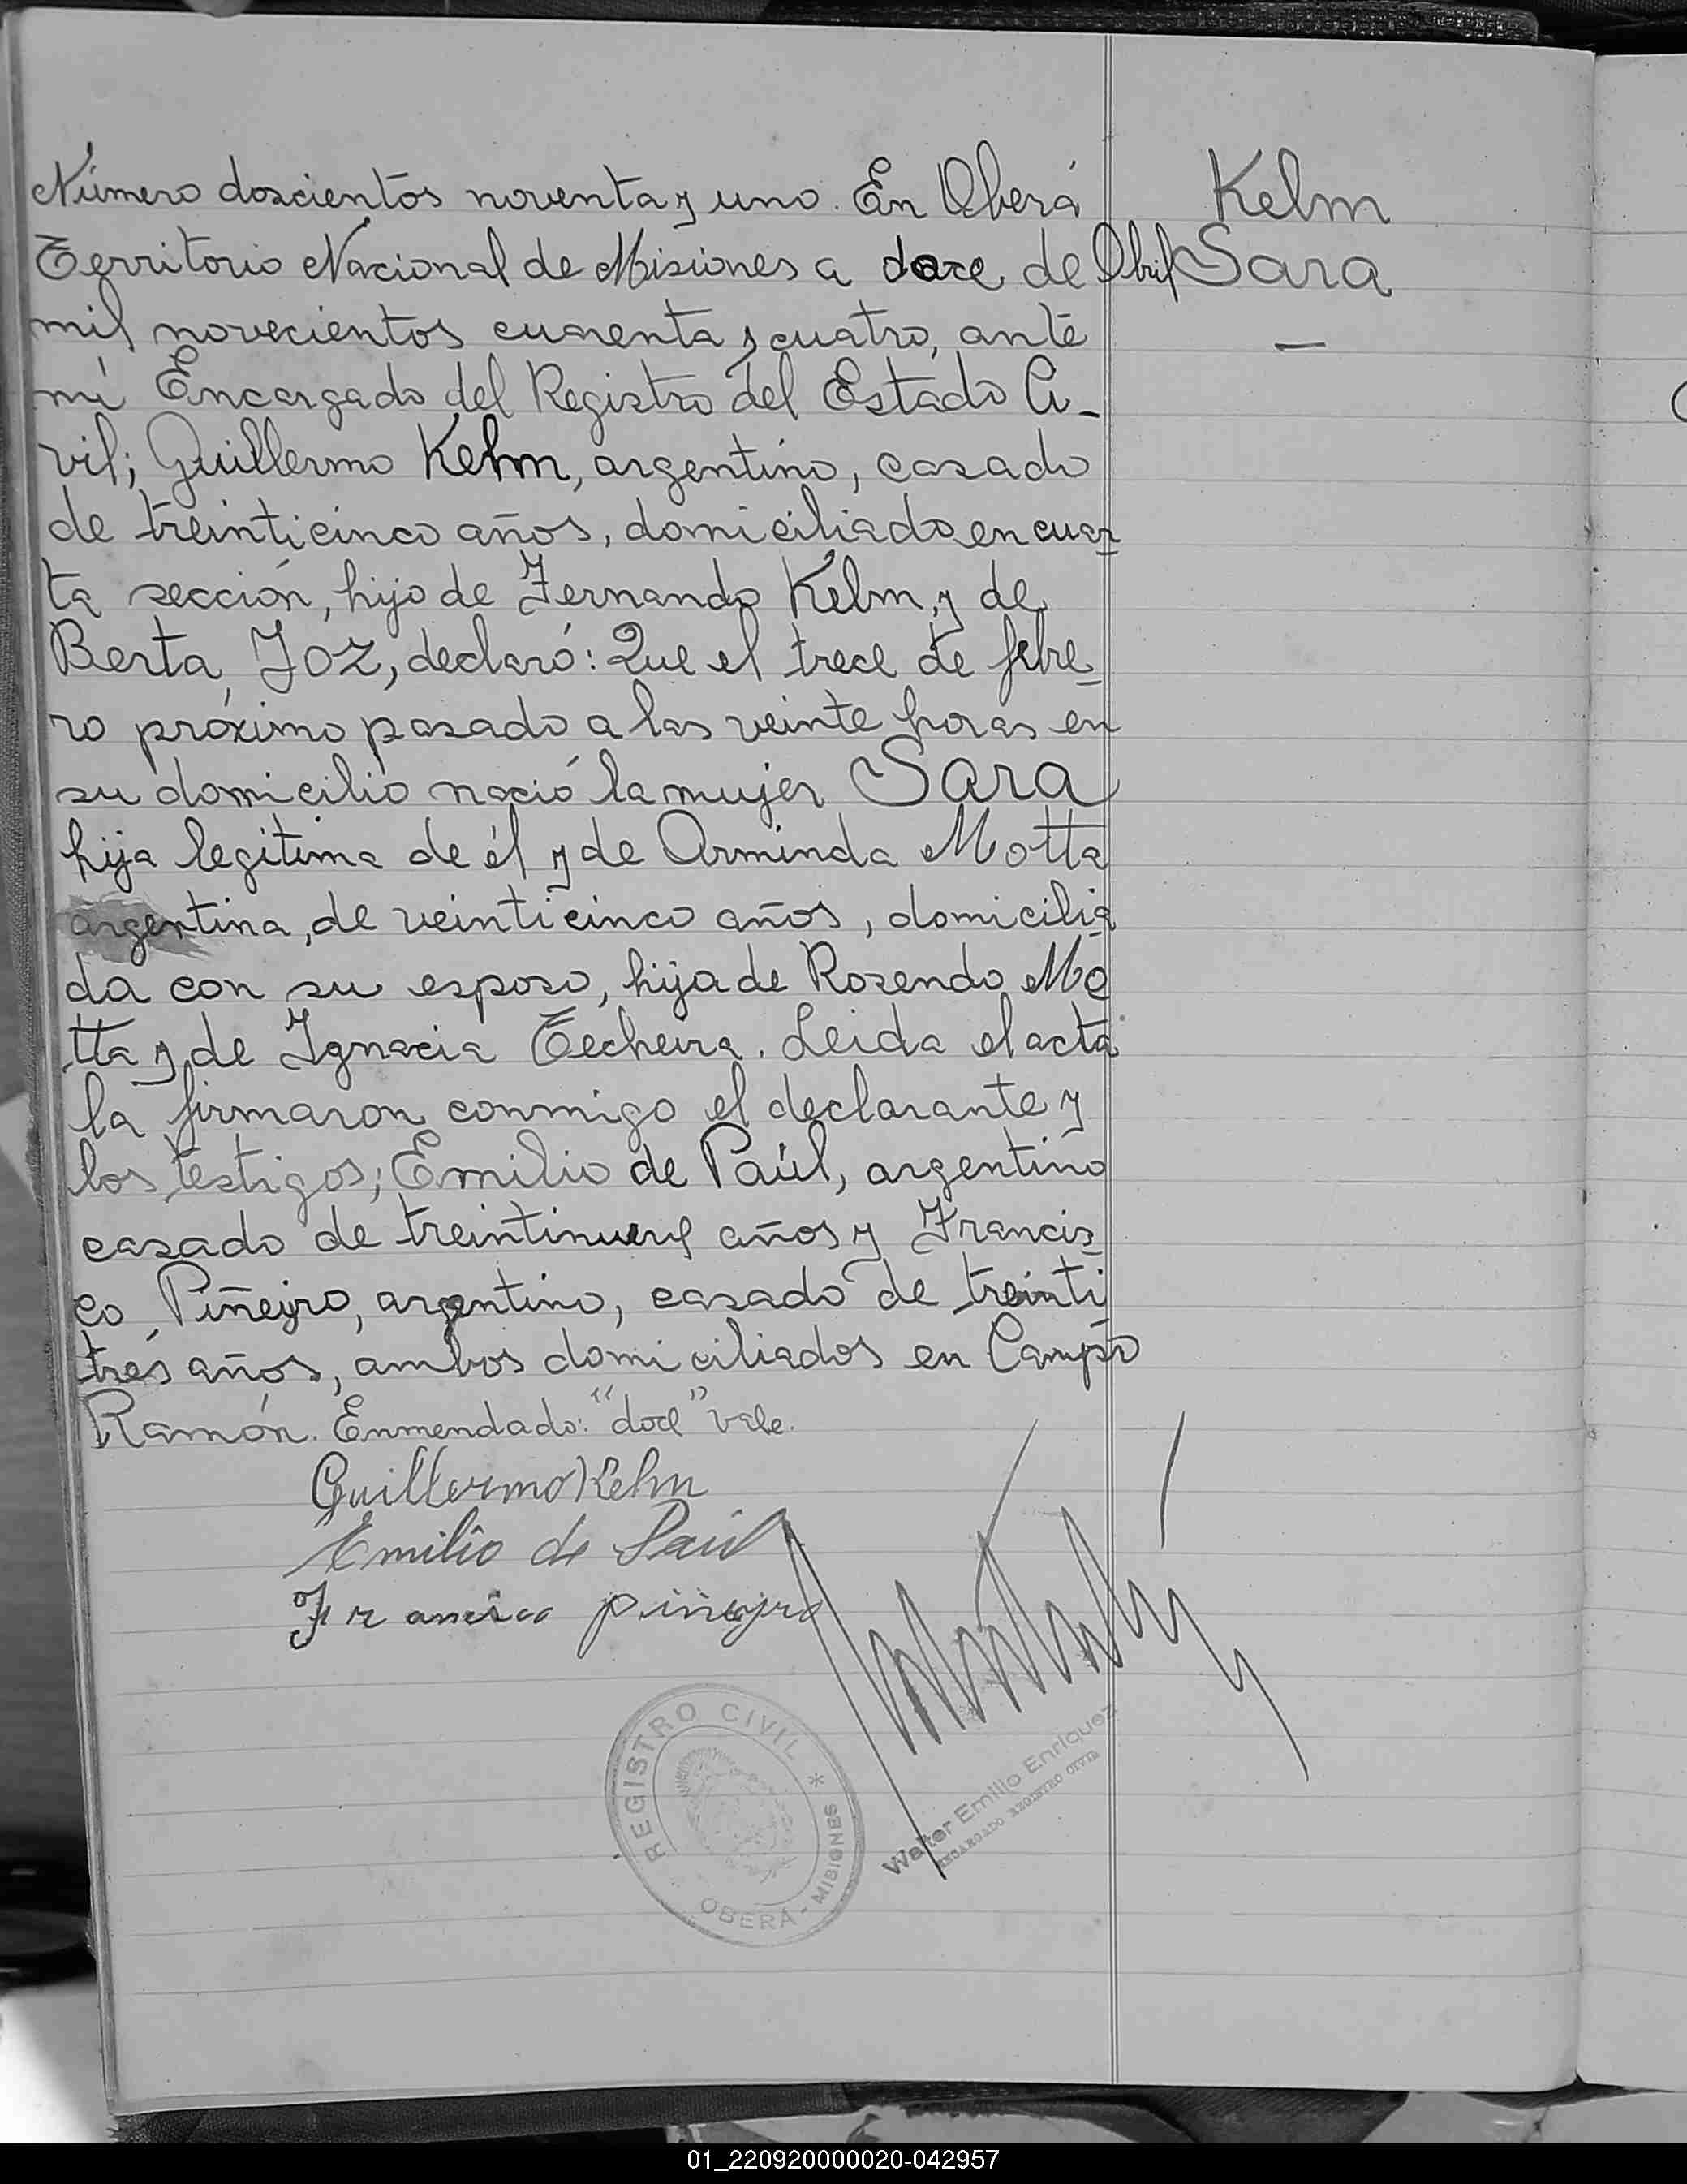 Número doscientos noventa y uno. En Oberá
Territorio Nacional de Misiones a doce de Abril
mil novecientos cuarenta y cuatro, ante
mí Encargado del Registro del Estado Ci-
vil; Guillermo Kelm, argentino, casado
de treinticinco años, domiciliado en cuar
ta sección, hijo de Fernando Kelm, y de
Berta Joz, declaró: Que el trece de febre
ro próximo pasado a las veinte horas en
su domicilio nació la mujer Sara
hija legítima de él y de Arminda Motta
argentina, de veinticinco años, domicilia
da con su esposo, hija de Rosendo Mo
tta y de Ignacia Techeira. Leida el acta
la firmaron conmigo el declarante y
los testigos; Emilio de Paúl, argentino
casado de treintinueve años y Francis
co Piñeyro, argentino, casado de treinti
tres años, ambos domiciliados en Campo
Ramón. Enmendado: "doce" vale.
Kelm
Sara
—
Guillermo Kelm
Emilio de Paúl
Francisco piñeyro
REGISTRO CIVIL *
OBERÁ - MISIONES
Walter Emilio Enriquez
ENCARGADO REGISTRO CIVIL
01_220920000020-042957